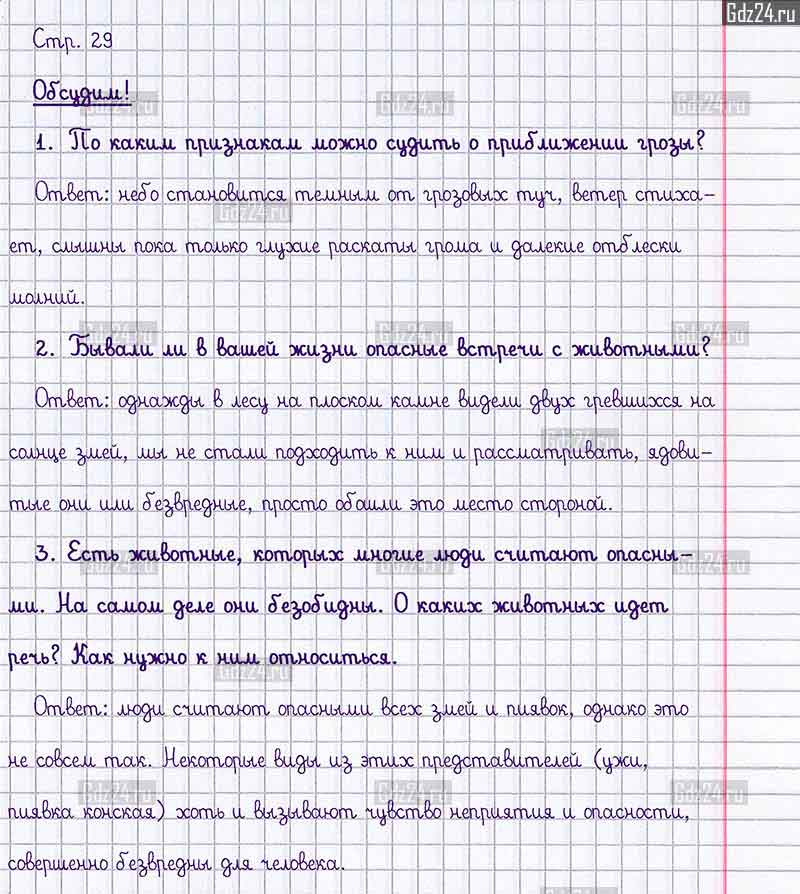 Gdz24.ru
Стр. 29
Обсудим!
1. По каким признакам можно судить о приближении грозы?
Ответ: небо становится темным от грозовых туч, ветер стиха-
ет, слышны пока только глухие раскаты грома и далекие отблески
молний.
2. Бывали ли в вашей жизни опасные встречи с животными?
Ответ: однажды в лесу на плоском камне видели двух гревшихся на
солнце змей, мы не стали подходить к ним и рассматривать, ядови-
тые они или безвредные, просто обошли это место стороной.
3. Есть животные, которых многие люди считают опасны-
ми. На самом деле они безобидны. О каких животных идет
речь? Как нужно к ним относиться.
Ответ: люди считают опасными всех змей и пиявок, однако это
не совсем так. Некоторые виды из этих представителей (ужи,
пиявка конская) хоть и вызывают чувство неприятия и опасности,
совершенно безвредны для человека.